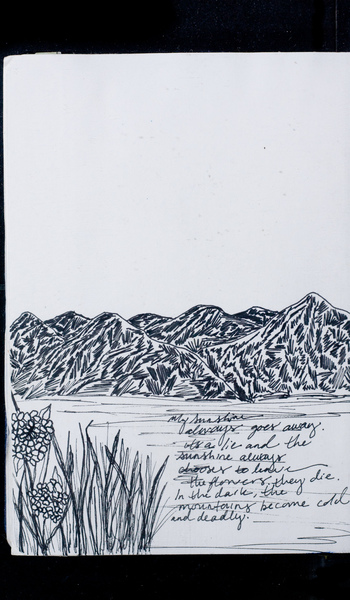 My sunshine
always goes away.
it's a lie and the
sunshine always
chooses to leave
the flowers, they die.
In the dark, the
mountains become cold
and deadly.